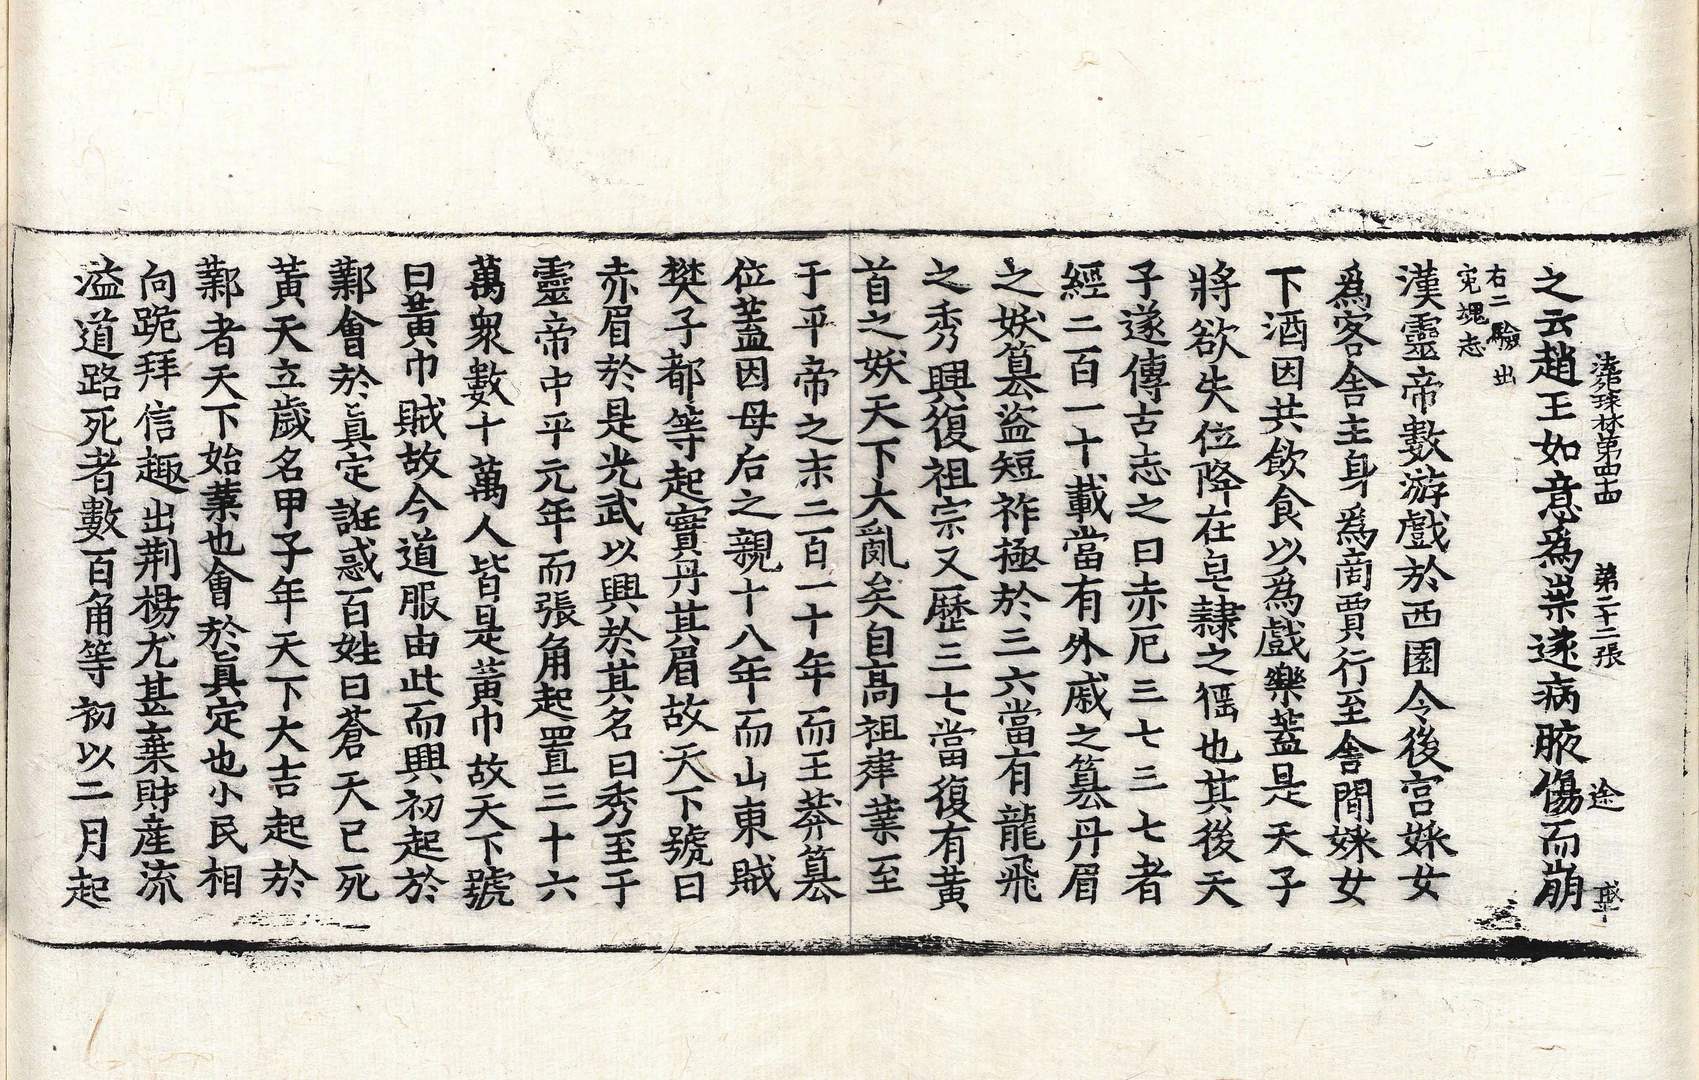 法苑珠林第四十四 第二十二張 途
之云趙王如意為祟遂病腋傷而崩
右二驗出
冤魂志
漢靈帝數游戲於西園令後宮婇女
爲客舍主身爲商賈行至舍間婇女
下酒因共飲食以爲戲樂蓋是天子
將欲失位降在皂隸之徭也其後天
子遂傳古志之曰赤厄三七三七者
經二百一十載當有外戚之篡丹眉
之妖篡盜短祚極於三六當有龍飛
之秀興復祖宗又歷三七當復有黃
首之妖天下大亂矣自高祖建業至
于平帝之末二百一十年而王莽篡
位蓋因母后之親十八年而山東賊
樊子都等起實丹其眉故天下號曰
赤眉於是光武以興於其名曰秀至于
靈帝中平元年而張角起置三十六
萬衆數十萬人皆是黃巾故天下號
曰黃巾賊故今道服由此而興初起於
鄴會於眞定誑惑百姓曰蒼天已死
黃天立歲名甲子年天下大吉起於
鄴者天下始業也會於眞定也小民相
向跪拜信趣出荆楊尤甚棄財產流
溢道路死者數百角等初以二月起